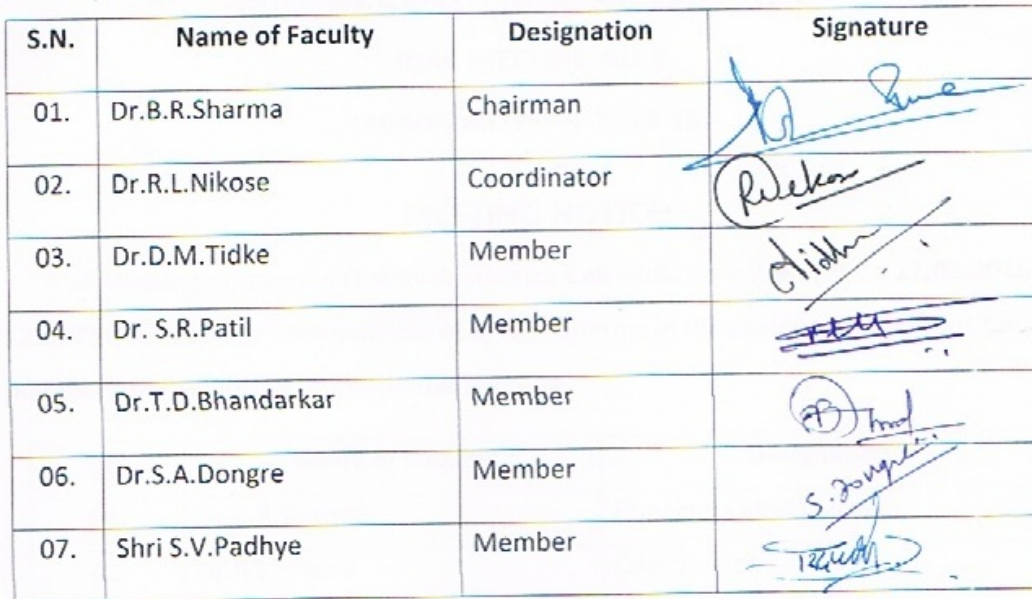 S.N. Name of Faculty Designation Signature
01. Dr.B.R.Sharma Chairman
02. Dr.R.L.Nikose Coordinator
03. Dr.D.M.Tidke Member
04. Dr. S.R.Patil Member
05. Dr.T.D.Bhandarkar Member
06. Dr.S.A.Dongre Member S.Dongre
07. Shri S.V.Padhye Member